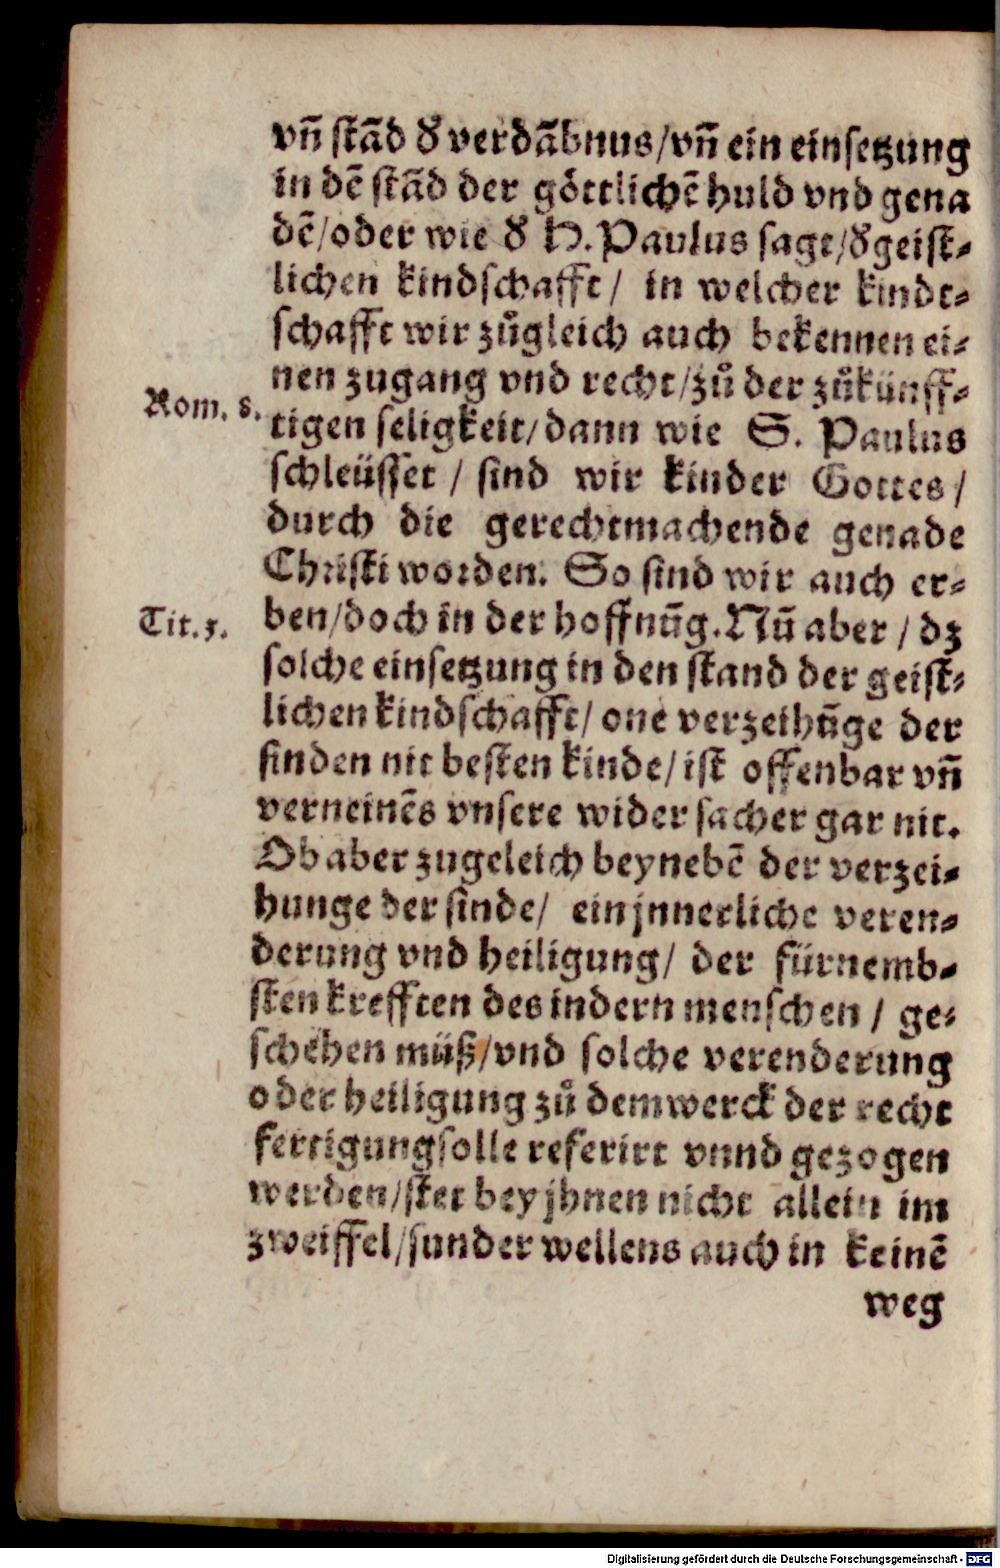 vñ stãd d' verdãbnus/vñ ein einsetzung
in dẽ stãd der göttlichẽ huld vnd gena
dẽ/oder wie d' H. Paulus sagt/d'geist-
lichen kindschafft/ in welcher kindt-
schafft wir zůgleich auch bekennen ei-
nen zugang vnd recht/zů der zůkünff-
Rom. 8.
tigen seligkeit/dann wie S. Paulus
schleüsset / sind wir kinder Gottes /
durch die gerechtmachende genade
Christi worden. So sind wir auch er-
Tit. 3.
ben/doch in der hoffnũg. Nũ aber / dz
solche einsetzung in den stand der geist-
lichen kindschafft/ one verzeihũge der
sinden nit besten kinde/ist offenbar vñ
verneinẽs vnsere widersacher gar nit.
Ob aber zugeleich beynebẽ der verzei-
hunge der sinde/ ein jnnerliche veren-
derung vnd heiligung/ der fürnemb-
sten krefften des indern menschen / ge-
schehen müß/vnd solche verenderung
oder heiligung zů dem werck der recht
fertigung solle referirt vnnd gezogen
werden/stet bey jhnen nicht allein im
zweiffel/sunder wellens auch in keinẽ
weg
Digitalisierung gefördert durch die Deutsche Forschungsgemeinschaft - DFG